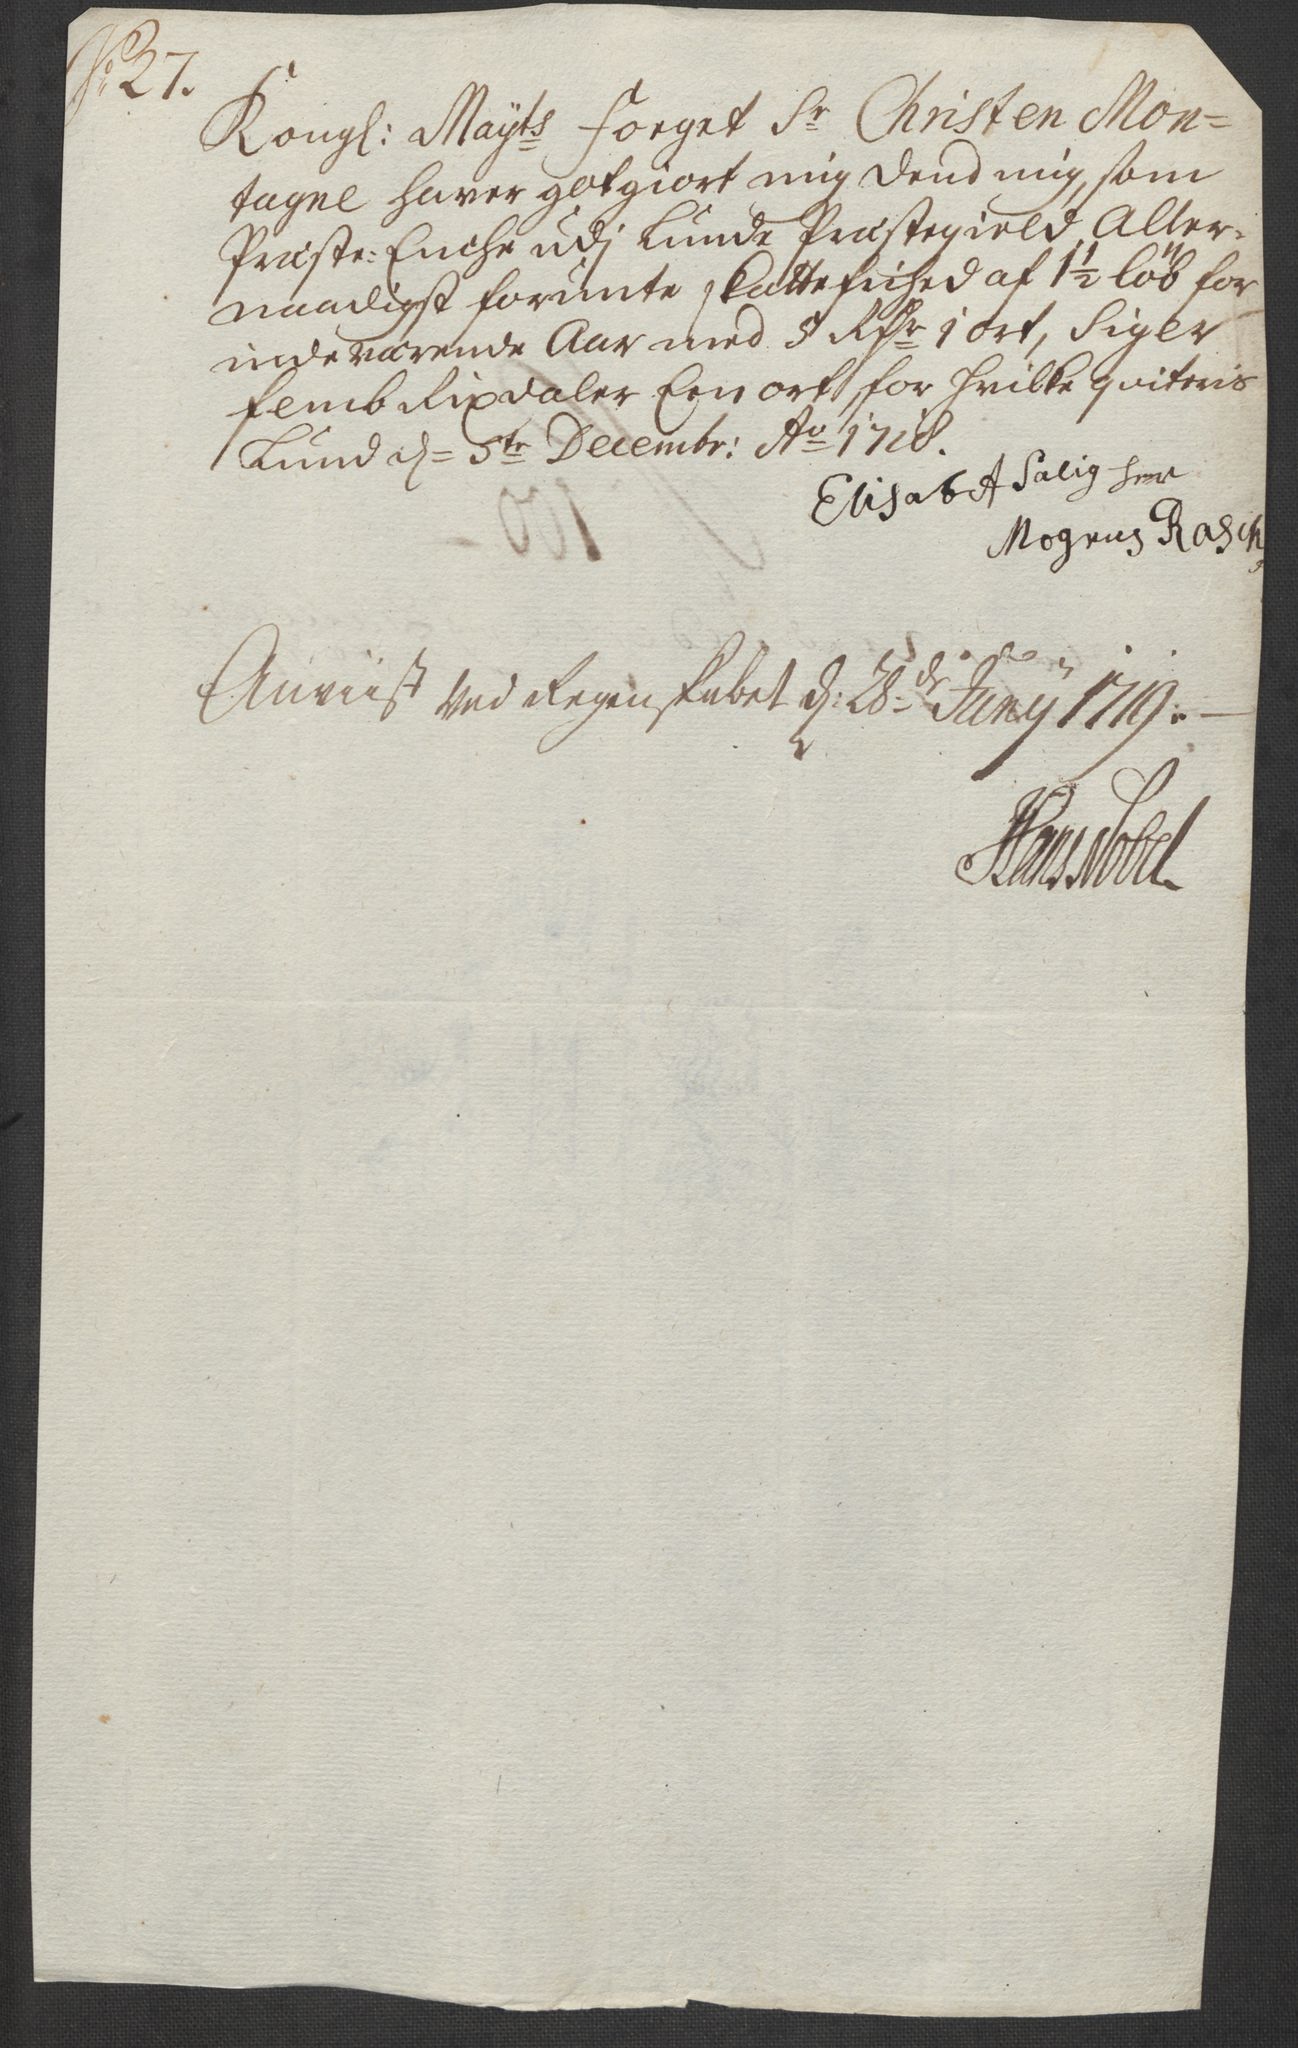 No 27.
Kongl: Mayts Foeget Sr Christen Mon=
tagne haver godgiort mig dend mig, som
Præste: Enche udj Lunde Præstegield, Aller-
naadigst forunte skattefrihed af 1½ löb for
indeværende Aar med 5 Rdr 1 ort, Siger
femb Rixdaler Een ort, for hvilke qviteris
Lund d= 5te Decembr: Ao 1718.
Elisabet Salig her
Mogens Rasch
Anviist ved Regenskabet d: 28de Junÿ 1719.
Hans Nobel